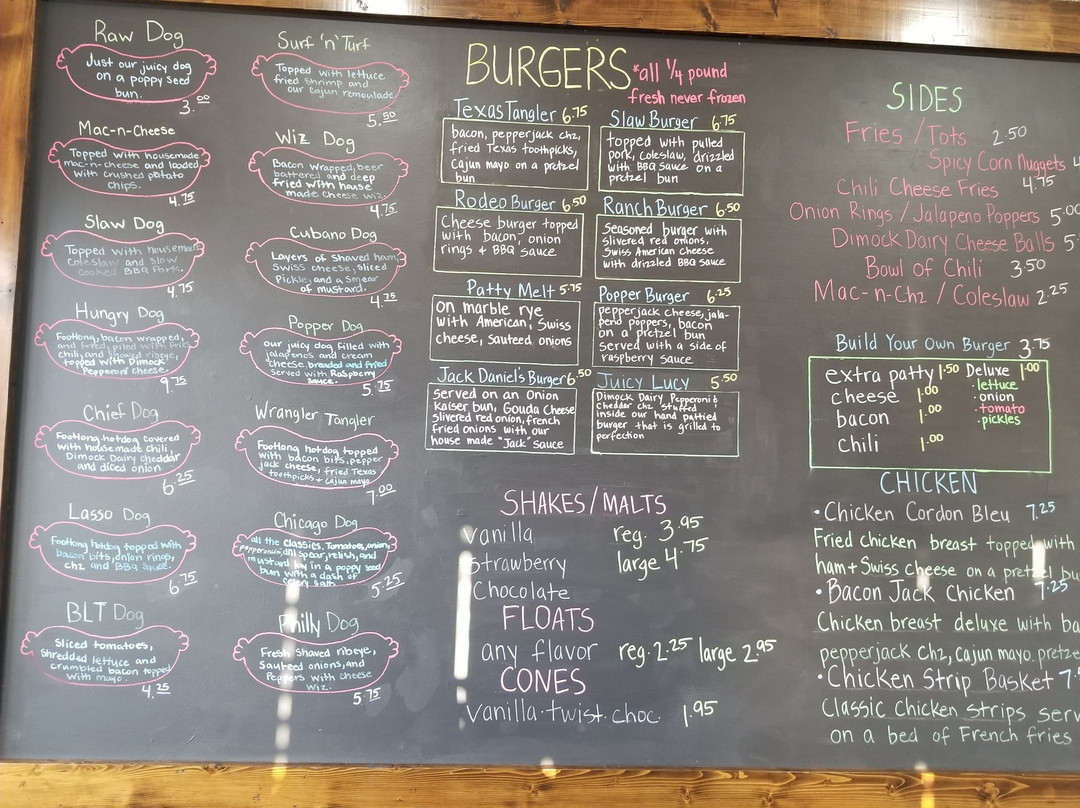 Raw Dog
Just our juicy dog
on a poppy seed
bun.
3.00
Mac-n-Cheese
Topped with housemade
mac-n-cheese and loaded
with crushed potato
chips.
4.75
Slaw Dog
Topped with housemade
Coleslaw and slow
cooked BBQ Pork.
4.75
Hungry Dog
Footlong, bacon wrapped,
and fried, piled with fries
chili, and shaved ribeye,
topped with Dimock
Pepperoni cheese.
9.75
Chief Dog
Footlong hotdog covered
with housemade chili,
Dimock Dairy cheddar
and diced onion
6.25
Lasso Dog
Footlong hotdog topped with
bacon bits, onion rings,
chz and BBQ Sauce.
6.75
BLT Dog
Sliced tomatoes,
Shredded lettuce and
crumbled bacon topped
with mayo.
4.25
Surf 'n' Turf
Topped with lettuce
fried shrimp and
our Cajun remoulade
5.50
Wiz Dog
Bacon wrapped, beer
battered and deep
fried with house
made cheese wiz.
4.75
Cubano Dog
Layers of shaved ham,
Swiss cheese, sliced
Pickle, and a smear
of mustard.
4.25
Popper Dog
our juicy dog filled with
jalapenos and cream
cheese, breaded and fried
Served with Raspberry
Sauce.
5.75
Wrangler Tangler
Footlong hotdog topped
with bacon bits, pepper
jack cheese, fried Texas
toothpicks + Cajun mayo
7.00
Chicago Dog
all the classics. Tomatoes, onion,
pepperoncini, dill spear, relish, and
mustard lay in a poppy seed
bun with a dash of
celery salt
5.25
Philly Dog
Fresh Shaved ribeye,
Sauteed onions, and
Peppers with cheese
wiz.
5.75
BURGERS
*all 1/4 pound
fresh never frozen
Texas Tangler 6.75
bacon, pepperjack chz,
fried Texas toothpicks,
Cajun mayo on a pretzel
bun
Rodeo Burger 6.50
Cheese burger topped
with bacon, onion
rings + BBQ sauce
Patty Melt 5.75
on marble rye
with American, Swiss
cheese, sauteed onions
Jack Daniel's Burger 6.50
served on an Onion
Kaiser bun, Gouda Cheese
slivered red onion, french
fried onions with our
house made "Jack" sauce
Slaw Burger 6.75
topped with pulled
pork, coleslaw, drizzled
with BBQ Sauce on a
pretzel bun
Ranch Burger 6.50
Seasoned burger with
slivered red onions,
Swiss American cheese
with drizzled BBQ sauce
Popper Burger 6.25
pepperjack cheese, jala-
peno poppers, bacon
on a pretzel bun
served with a side of
raspberry sauce
Juicy Lucy 5.50
Dimock Dairy Pepperoni &
cheddar chz stuffed
inside our hand pattied
burger that is grilled to
perfection
SHAKES/MALTS
Vanilla reg. 3.95
Strawberry large 4.75
Chocolate
FLOATS
any flavor reg. 2.25 large 2.95
CONES
Vanilla·twist·choc 1.95
SIDES
Fries / Tots 2.50
Spicy Corn Nuggets 4
Chili Cheese Fries 4.75
Onion Rings / Jalapeno Poppers 5.00
Dimock Dairy Cheese Balls 5
Bowl of Chili 3.50
Mac-n-Chz / Coleslaw 2.25
Build Your Own Burger 3.75
extra patty 1.50
cheese 1.00
bacon 1.00
chili 1.00
Deluxe 1.00
·lettuce
·onion
·tomato
·pickles
CHICKEN
•Chicken Cordon Bleu 7.25
Fried chicken breast topped with
ham + Swiss cheese on a pretzel bu
•Bacon Jack Chicken 7.25
Chicken breast deluxe with ba
pepperjack chz, Cajun mayo. pretze
•Chicken Strip Basket 7.
Classic chicken strips serv
on a bed of French fries